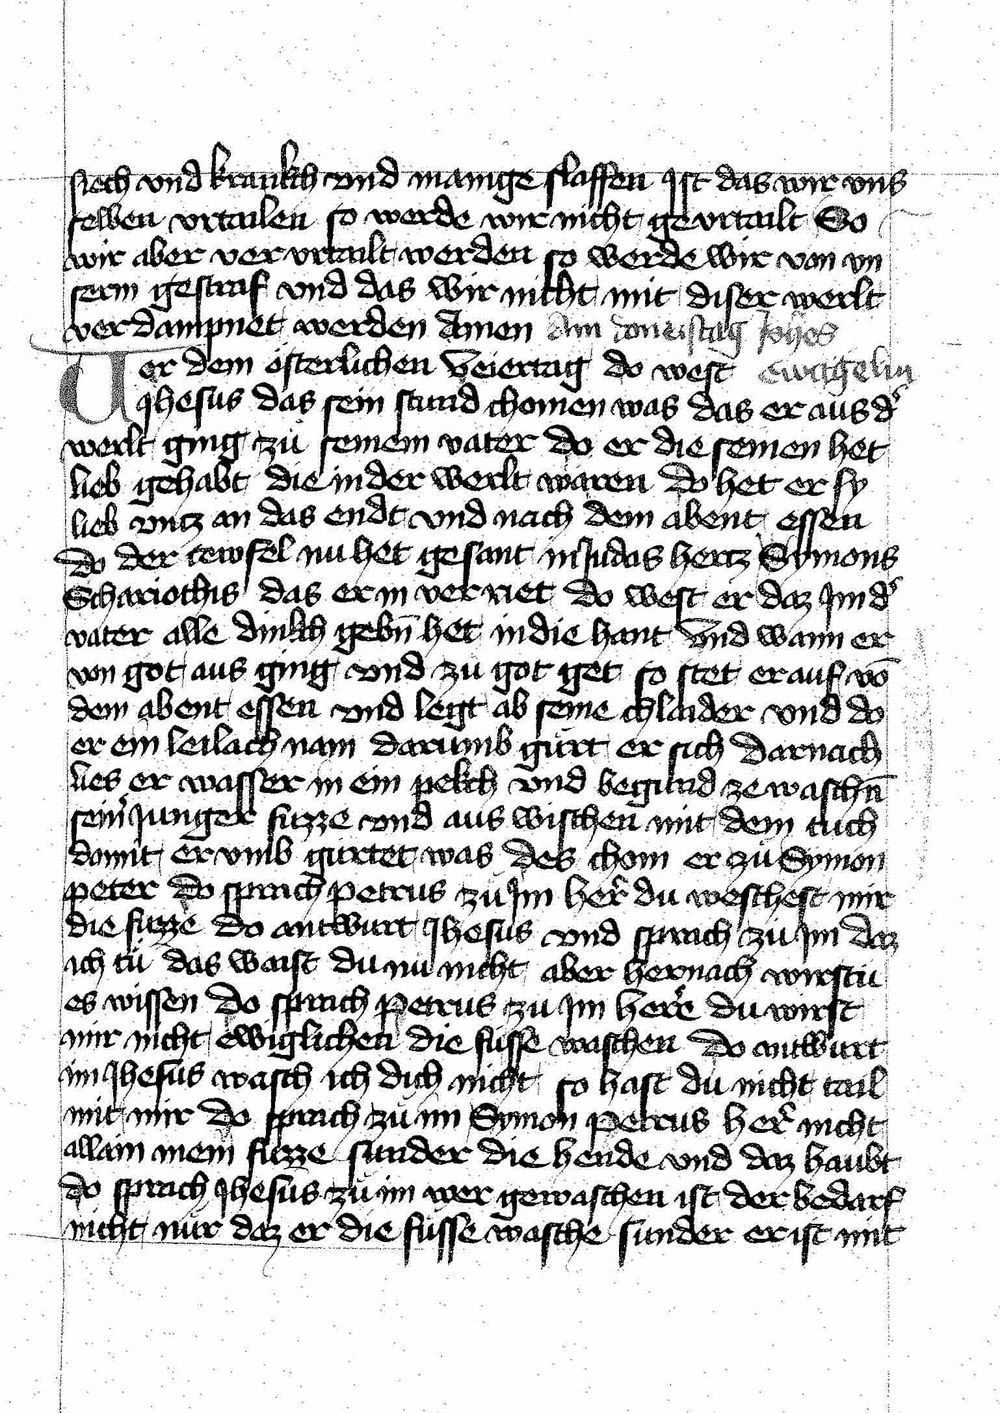 siech vnd krankch vnd manige slaffen Ist das wir vns
selben vrtailen so werde wir nicht gevrtailt So
wir aber ver vrtailt werden so werde wir von vn
serm gestraf vnd das wir nicht mit diser werlt
verdampnet werden Amen Am donerstag Joh̃es
Uer dem österlichen Veiertag do west ewãgeliu
Jhesus das sein stund chomen was das er aus dˢ
werlt ging zu seinem vater do er die seinen het
lieb gehabt die in der werlt waren do het er sy
lieb vntz an das endt vnd nach dem abent essen
do der tewfel nu het gesant in Judas hertz Symons
Schariothis das er in verriet do west er daz Im dˢ
vater alle dinkch gebn̄ het in die hant Vnd wann er
von got aus ging vnd zu got get so stet er auf vō
dem abent essen vnd legt ab seine chlaider vnd do
er ein leilach nam darumb gürt er sich Darnach
lies er wasser in ein pekch vnd begund ze waschn̄
seinˢ Junger fuzze vnd aus wischen mit dem tuch
domit er vmb gürtet was des chom er zu Symon
peter do sprach petrus zu Im her̃ du weschest mir
die fuzze do antwurt Jhesus vnd sprach zu Im daz
ich tü das waist du nu nicht aber hernach wirstu
es wissen do sprach Petrus zu Im her̃e du wirst
mir nicht ewiglichen die füsse waschen do antwurt
im Jhesus wasch ich dich nicht so hast du nicht tail
mit mir do sprach zu im Symon Petrus her̃ nicht
allain mein fuzze sunder die hende vnd daz haubt
do sprach Jhesus zu im wer gewaschen ist der bedarf
nicht nür daz er die füsse wasche sunder er ist mit